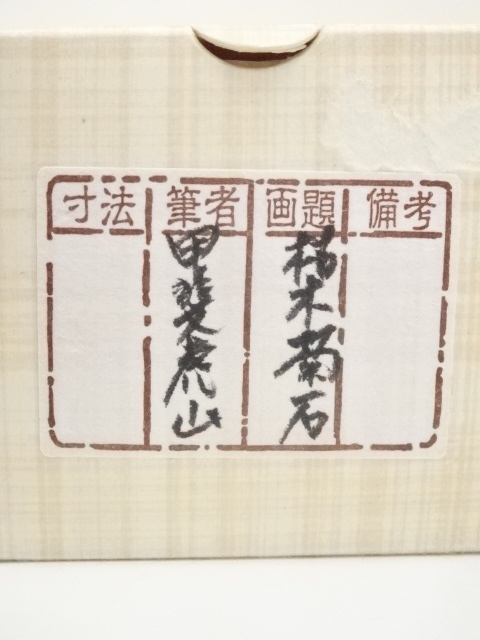 備考
画題
柿木菊石
筆者
甲斐虎山
寸法